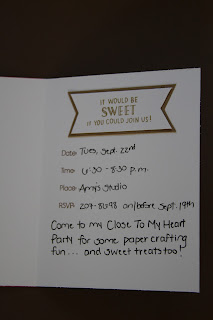 IT WOULD BE
SWEET
IF YOU COULD JOIN US!
Date: Tues, Sept. 22nd
Time: 6:30 - 8:30 p.m.
Place: Amy's Studio
RSVP: 207-8698 on/before Sept. 19th
Come to my Close To My Heart
Party for some paper crafting
fun... and sweet treats too!